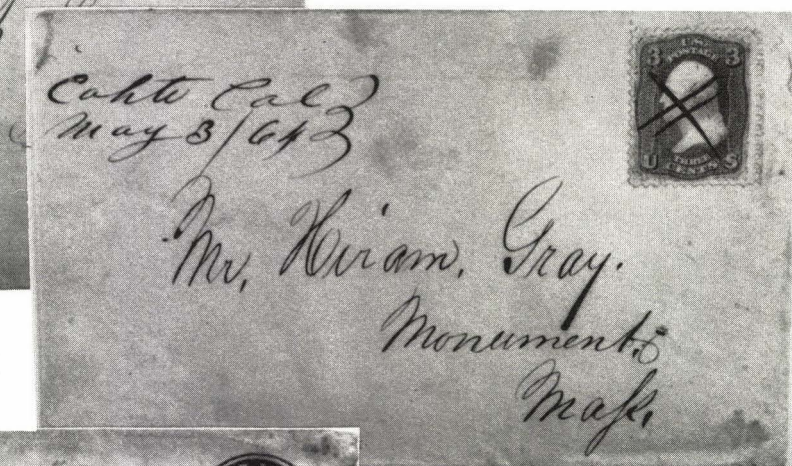 Cahto Cal
May 3/64
3 U.S. POSTAGE 3
U S
THREE
CENTS
Mr. Hiram. Gray.
Monument.
Mass.